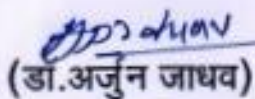 (डॉ.अर्जुन जाधव)